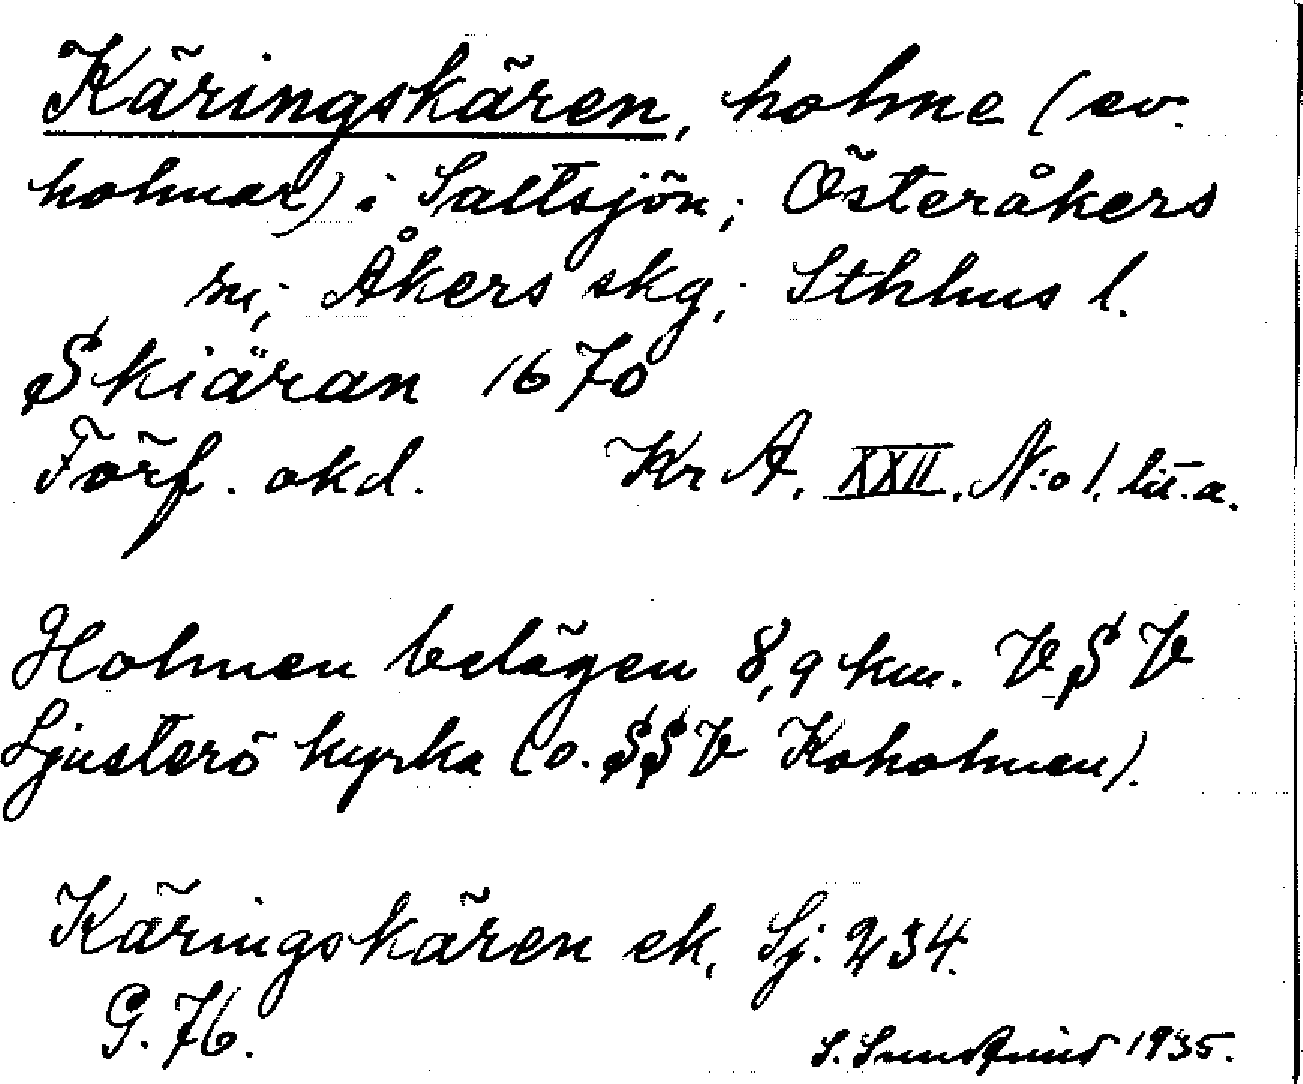 Käringskären, holme (ev.
holmar) i Saltsjön; Österåkers
sn; Åkers skg; Sthlms l.
Skiäran 1670
Förf. okd. Kr A. XXII. N:o 1. lit. a.
Holmen belägen 8,9 km. V S V
Ljusterö kyrka (o. SSV Koholmen).
Käringskären ek, Sj. 234.
G. 76.
S. 1935.